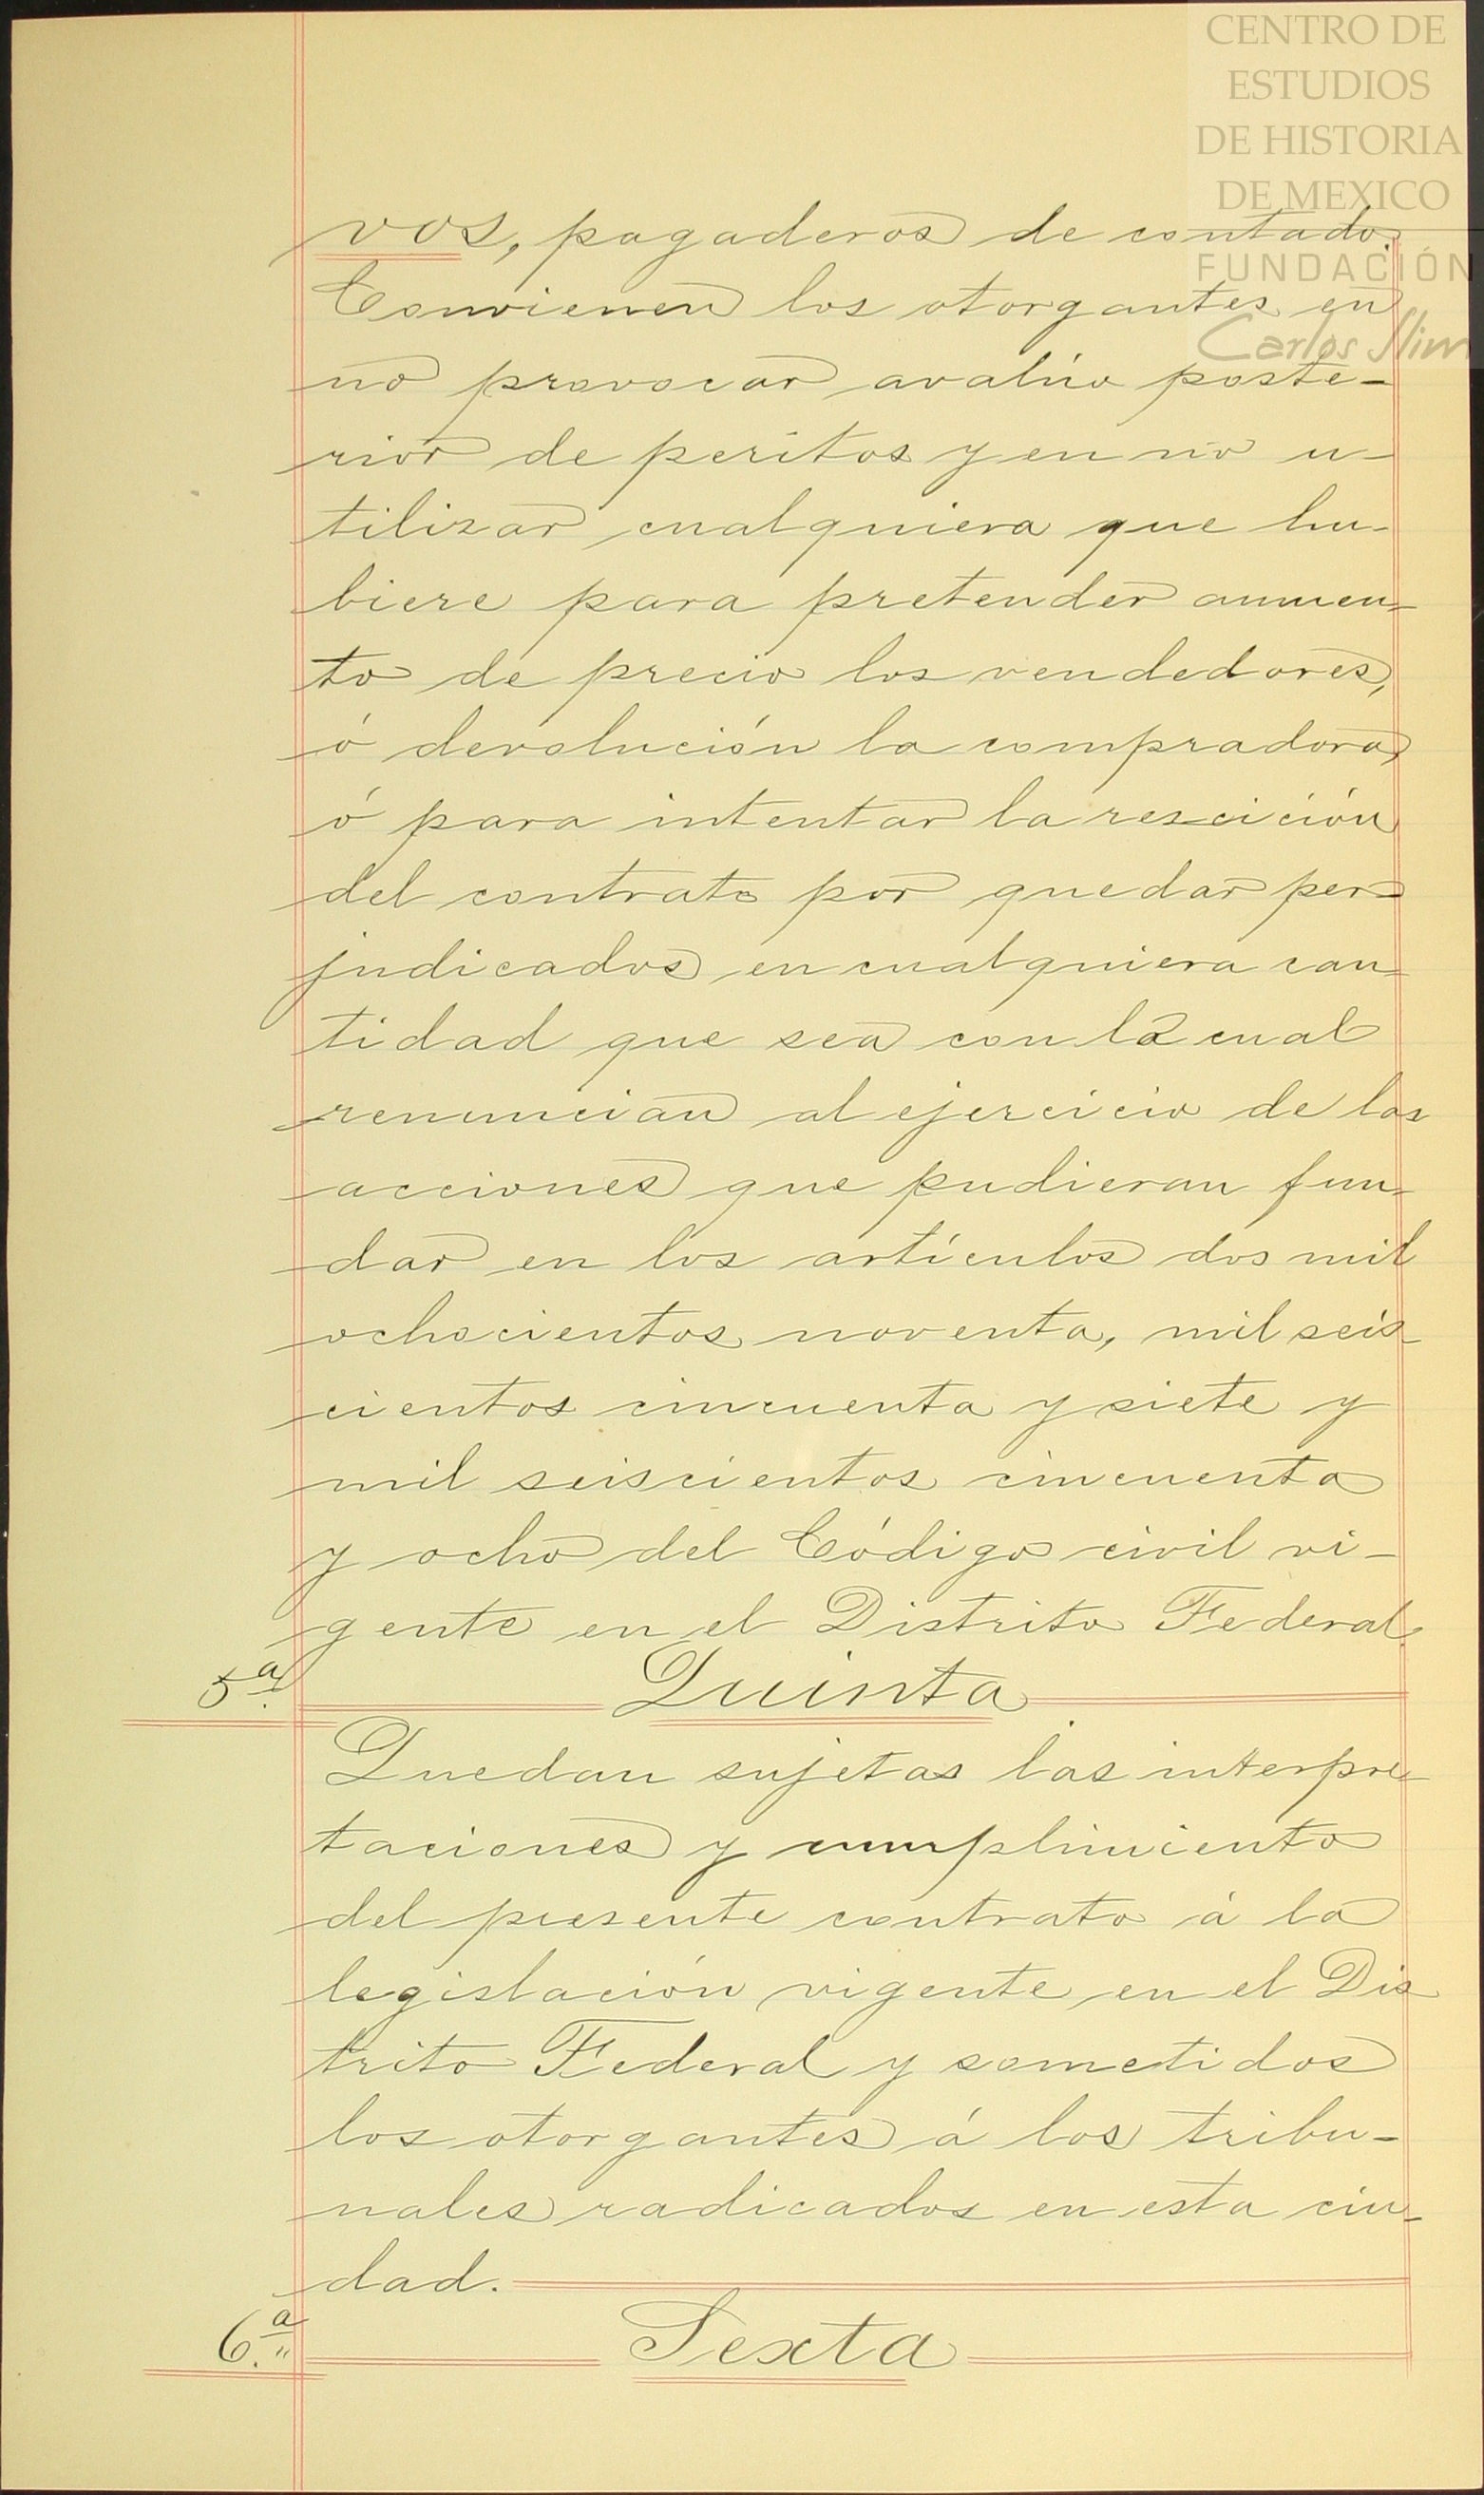 CENTRO DE
ESTUDIOS
DE HISTORIA
DE MEXICO
FUNDACIÓN
Carlos Slim
vos, pagaderos de contado.
Convienen los otorgantes en
no provocar avalúo poste-
rior de peritos y en no u-
tilizar cualquiera que hu-
biere para pretender aumen-
to de precio los vendedores,
ó devolución la compradora,
ó para intentar la rescición
del contrato por quedar per-
judicados en cualquiera can-
tidad que sea con la cual
renuncian al ejercicio de las
acciones que pudieran fun-
dar en los artículos dos mil
ochocientos noventa, mil seis
cientos cincuenta y siete y
mil seiscientos cincuenta
y ocho del Código civil vi-
gente en el Distrito Federal.
5a. Quinta
Quedan sujetas las interpre-
taciones y cumplimiento
del presente contrato á la
legislación vigente en el Dis
trito Federal y sometidos
los otorgantes á los tribu-
nales radicados en esta ciu-
dad.
6.a" Sexta